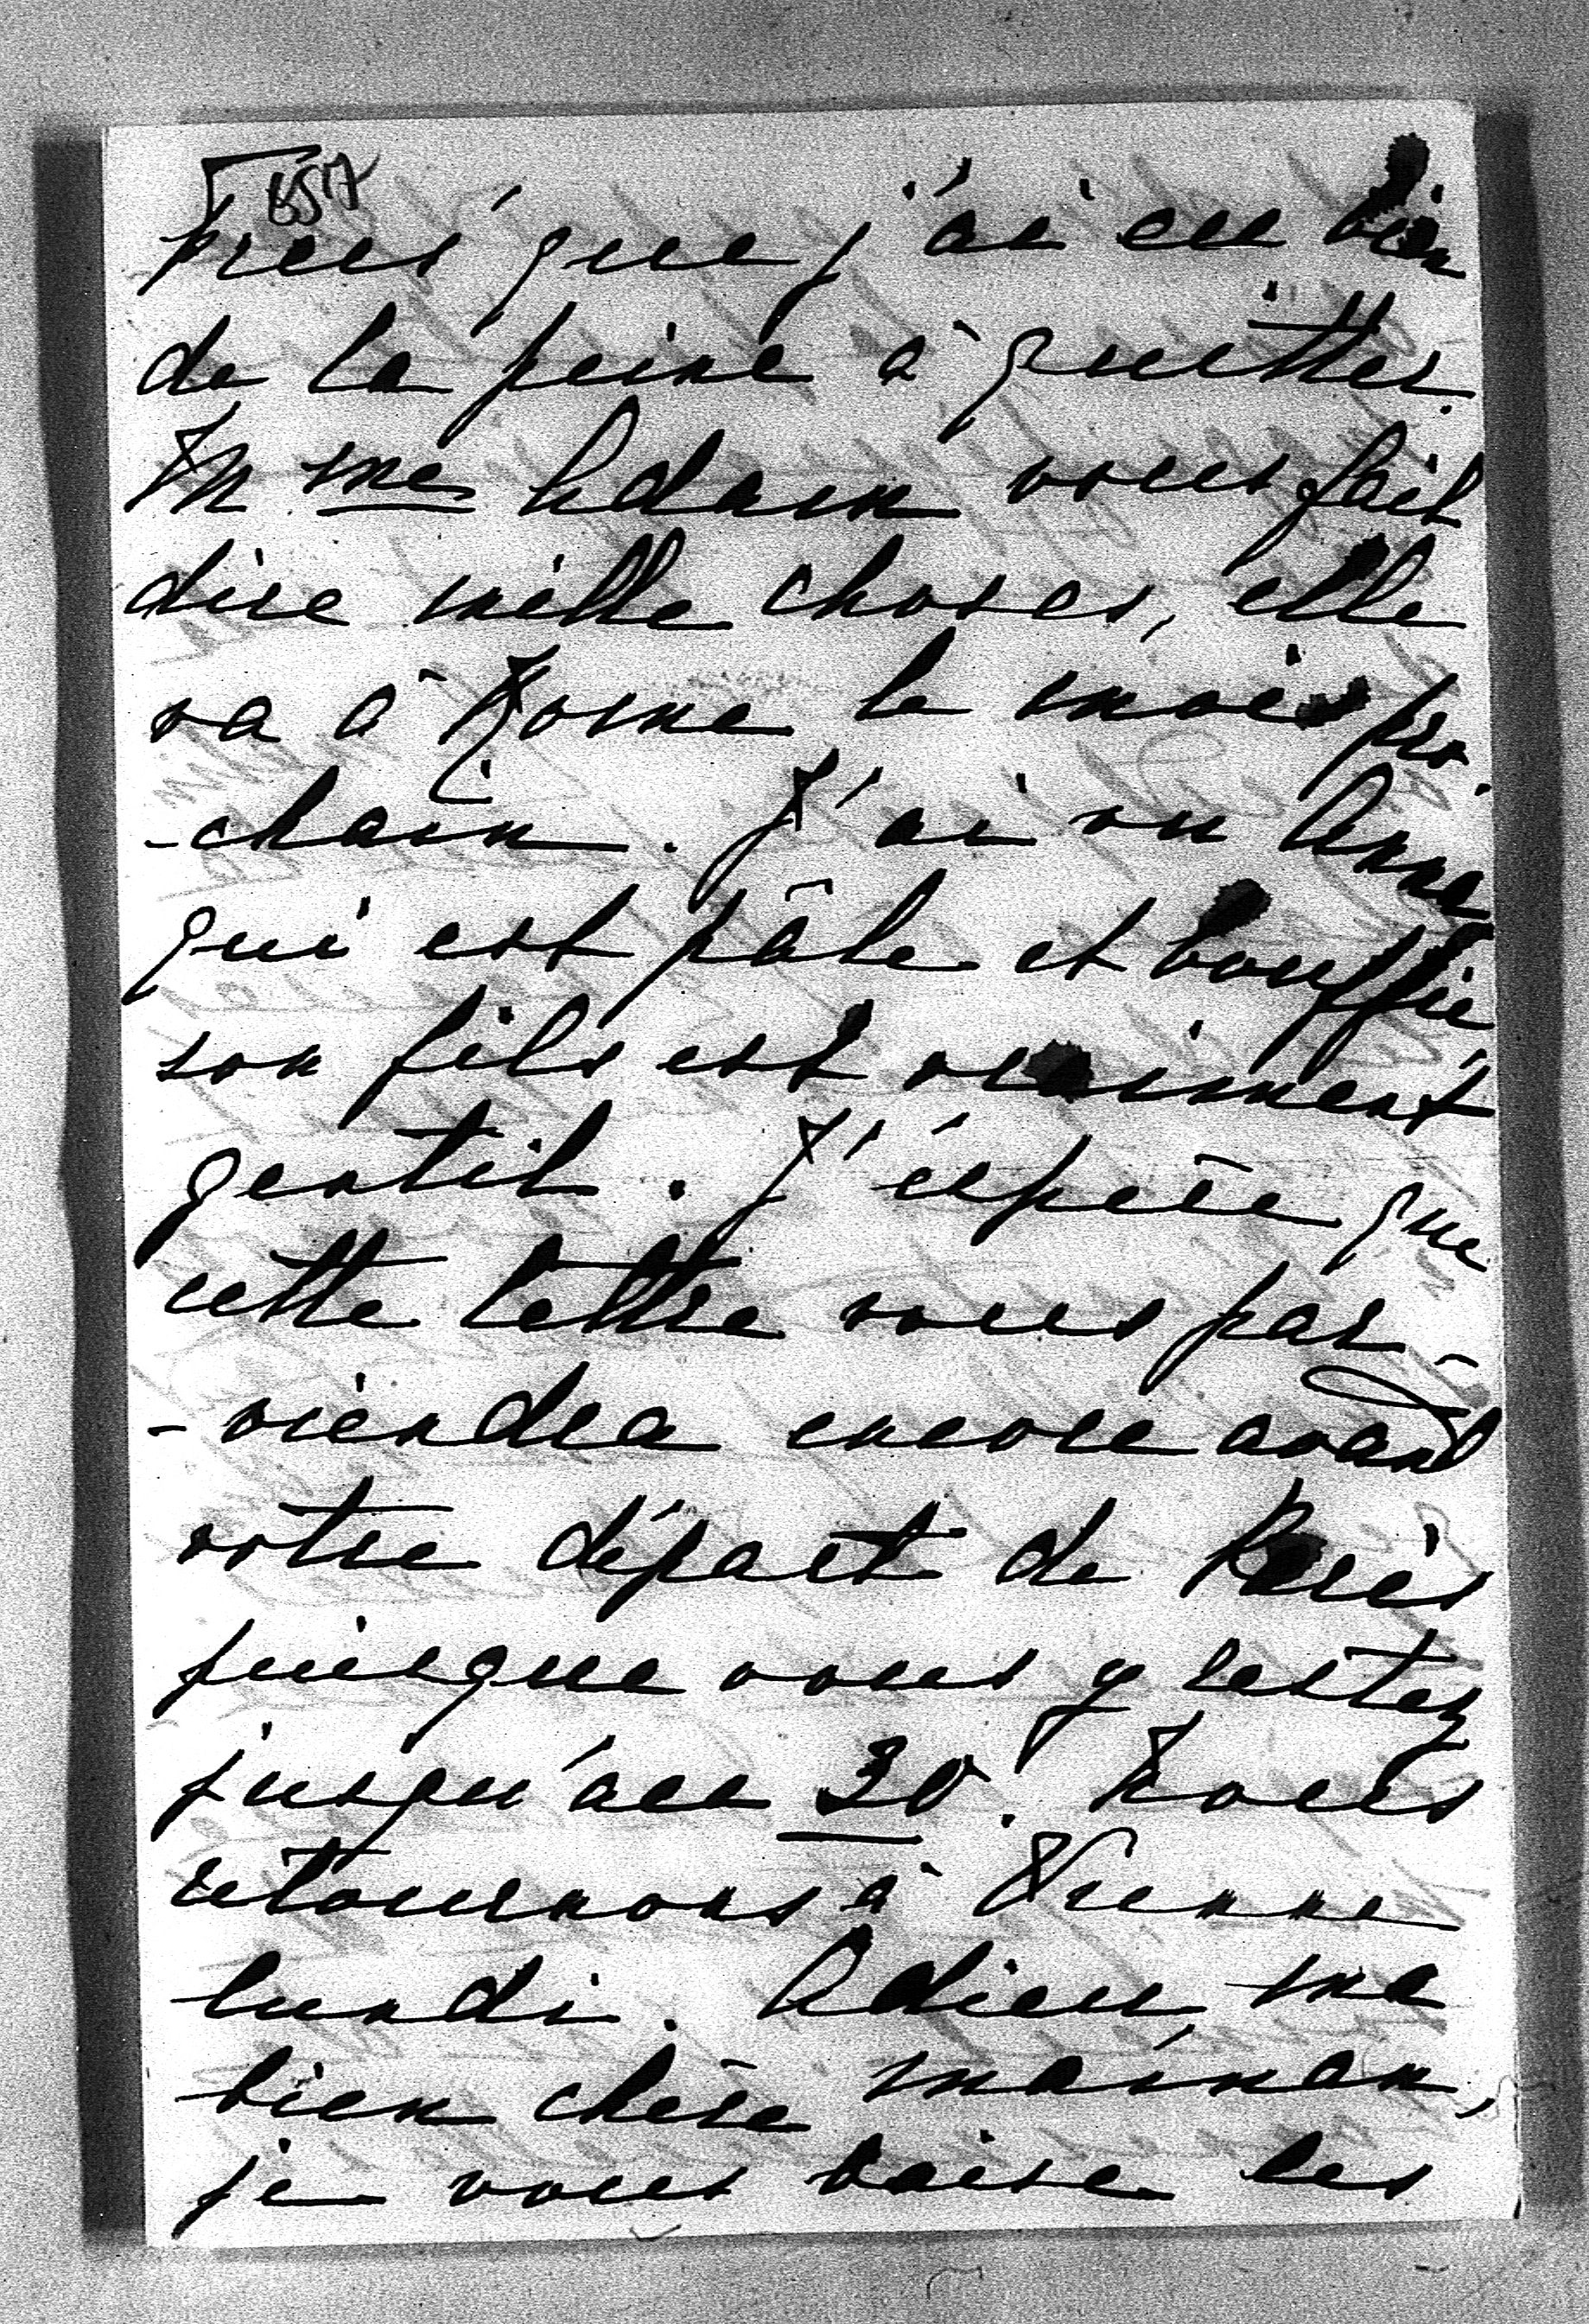 657
que j'ai eu bien
de la peine à quitter.
Mme Adam vous fait
dire mille choses, elle
va à Rome le mois pro-
-chain. J'ai vu Anna
qui est pâle et bouffie,
son fils est vraiment
gentil. J'espère que
cette lettre vous par-
-viendra encore avant
votre départ de Paris
puisque vous y restez
jusqu'au 30. Nous
retournons à Vienne
lundi. Adieu, ma
bien chère maman,
je vous baise les